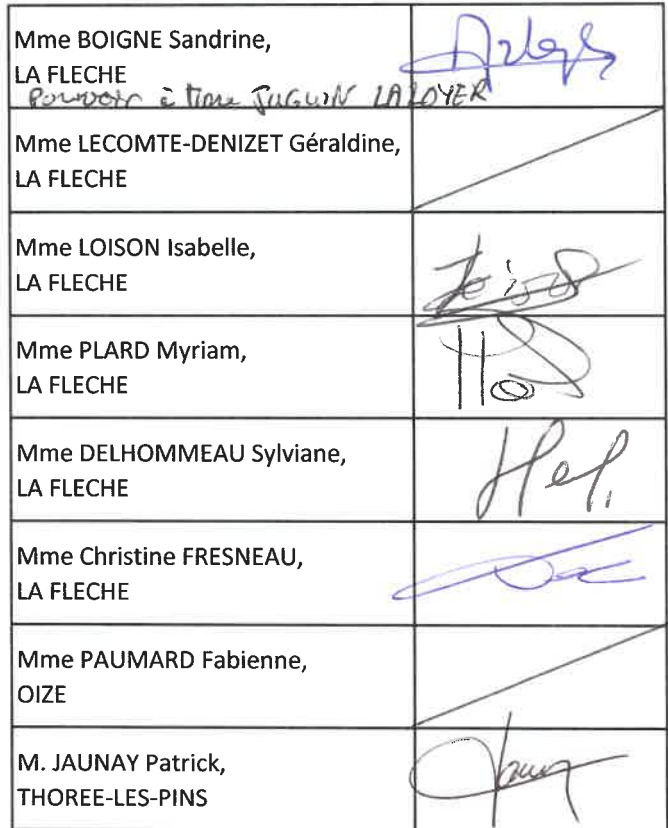 Mme BOIGNE Sandrine,
LA FLECHE
Pouvoir à Mme JUGUIN LALOYER
Mme LECOMTE-DENIZET Géraldine,
LA FLECHE
Mme LOISON Isabelle,
LA FLECHE
Mme PLARD Myriam,
LA FLECHE
Mme DELHOMMEAU Sylviane,
LA FLECHE
Mme Christine FRESNEAU,
LA FLECHE
Mme PAUMARD Fabienne,
OIZE
M. JAUNAY Patrick,
THOREE-LES-PINS